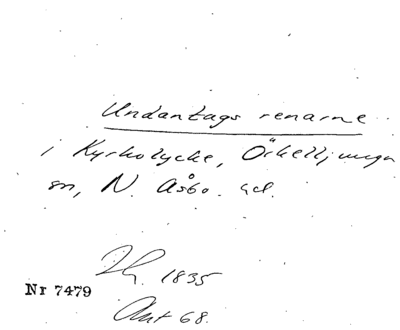 Undantags renarne
i Kyrkolycke, Örkelljunga
sn, N. Åsbo. hd.
1835
Nr 7479
Ant 68.